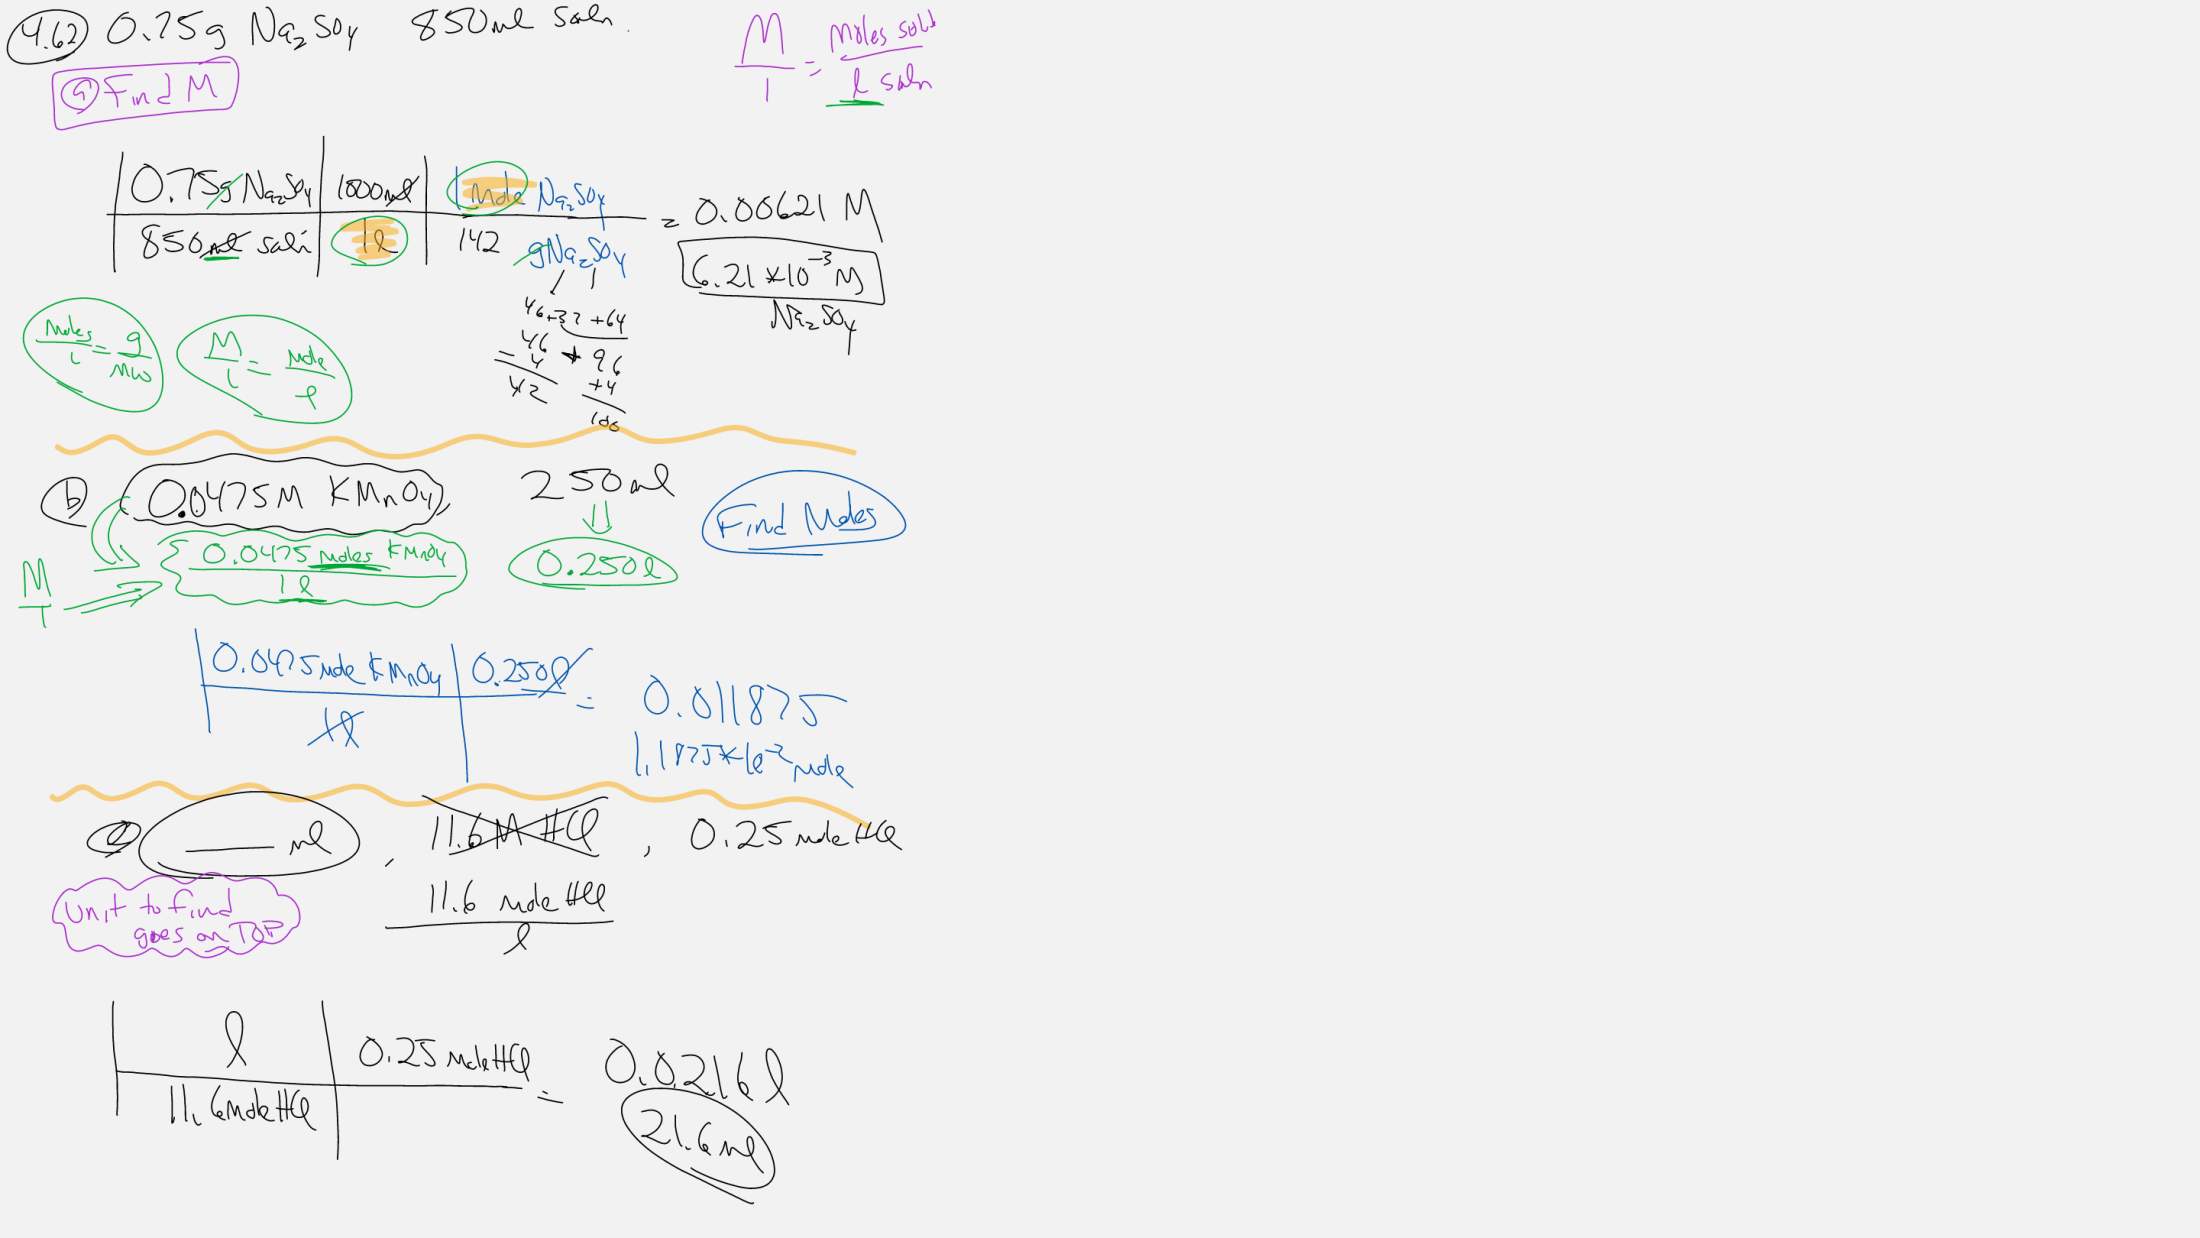 4.62 0.75g Na₂SO₄ 850ml soln.
M/1 = moles solut / l soln
a Find M
0.75g Na₂SO₄ | 1000ml | 1 mole Na₂SO₄
850ml soln | 1l | 142 g Na₂SO₄
= 0.00621 M
6.21 * 10⁻³ M
Na₂SO₄
46 + 32 + 64
46 + 96
- 4 + 4
42 100
Moles/1 = g/MW
M/1 = mole/l
b 0.0475M KMnO₄, 250ml
Find Moles
0.250l
M/1
0.0475 moles KMnO₄
1 l
0.0475 mole KMnO₄ | 0.250l
1l
= 0.011875
1.1875*10⁻² mole
c ___ ml, 11.6 M HCl, 0.25 mole HCl
11.6 mole HCl
l
Unit to find
goes on TOP
l | 0.25 mole HCl
11.6 mole HCl
= 0.0216 l
21.6 ml